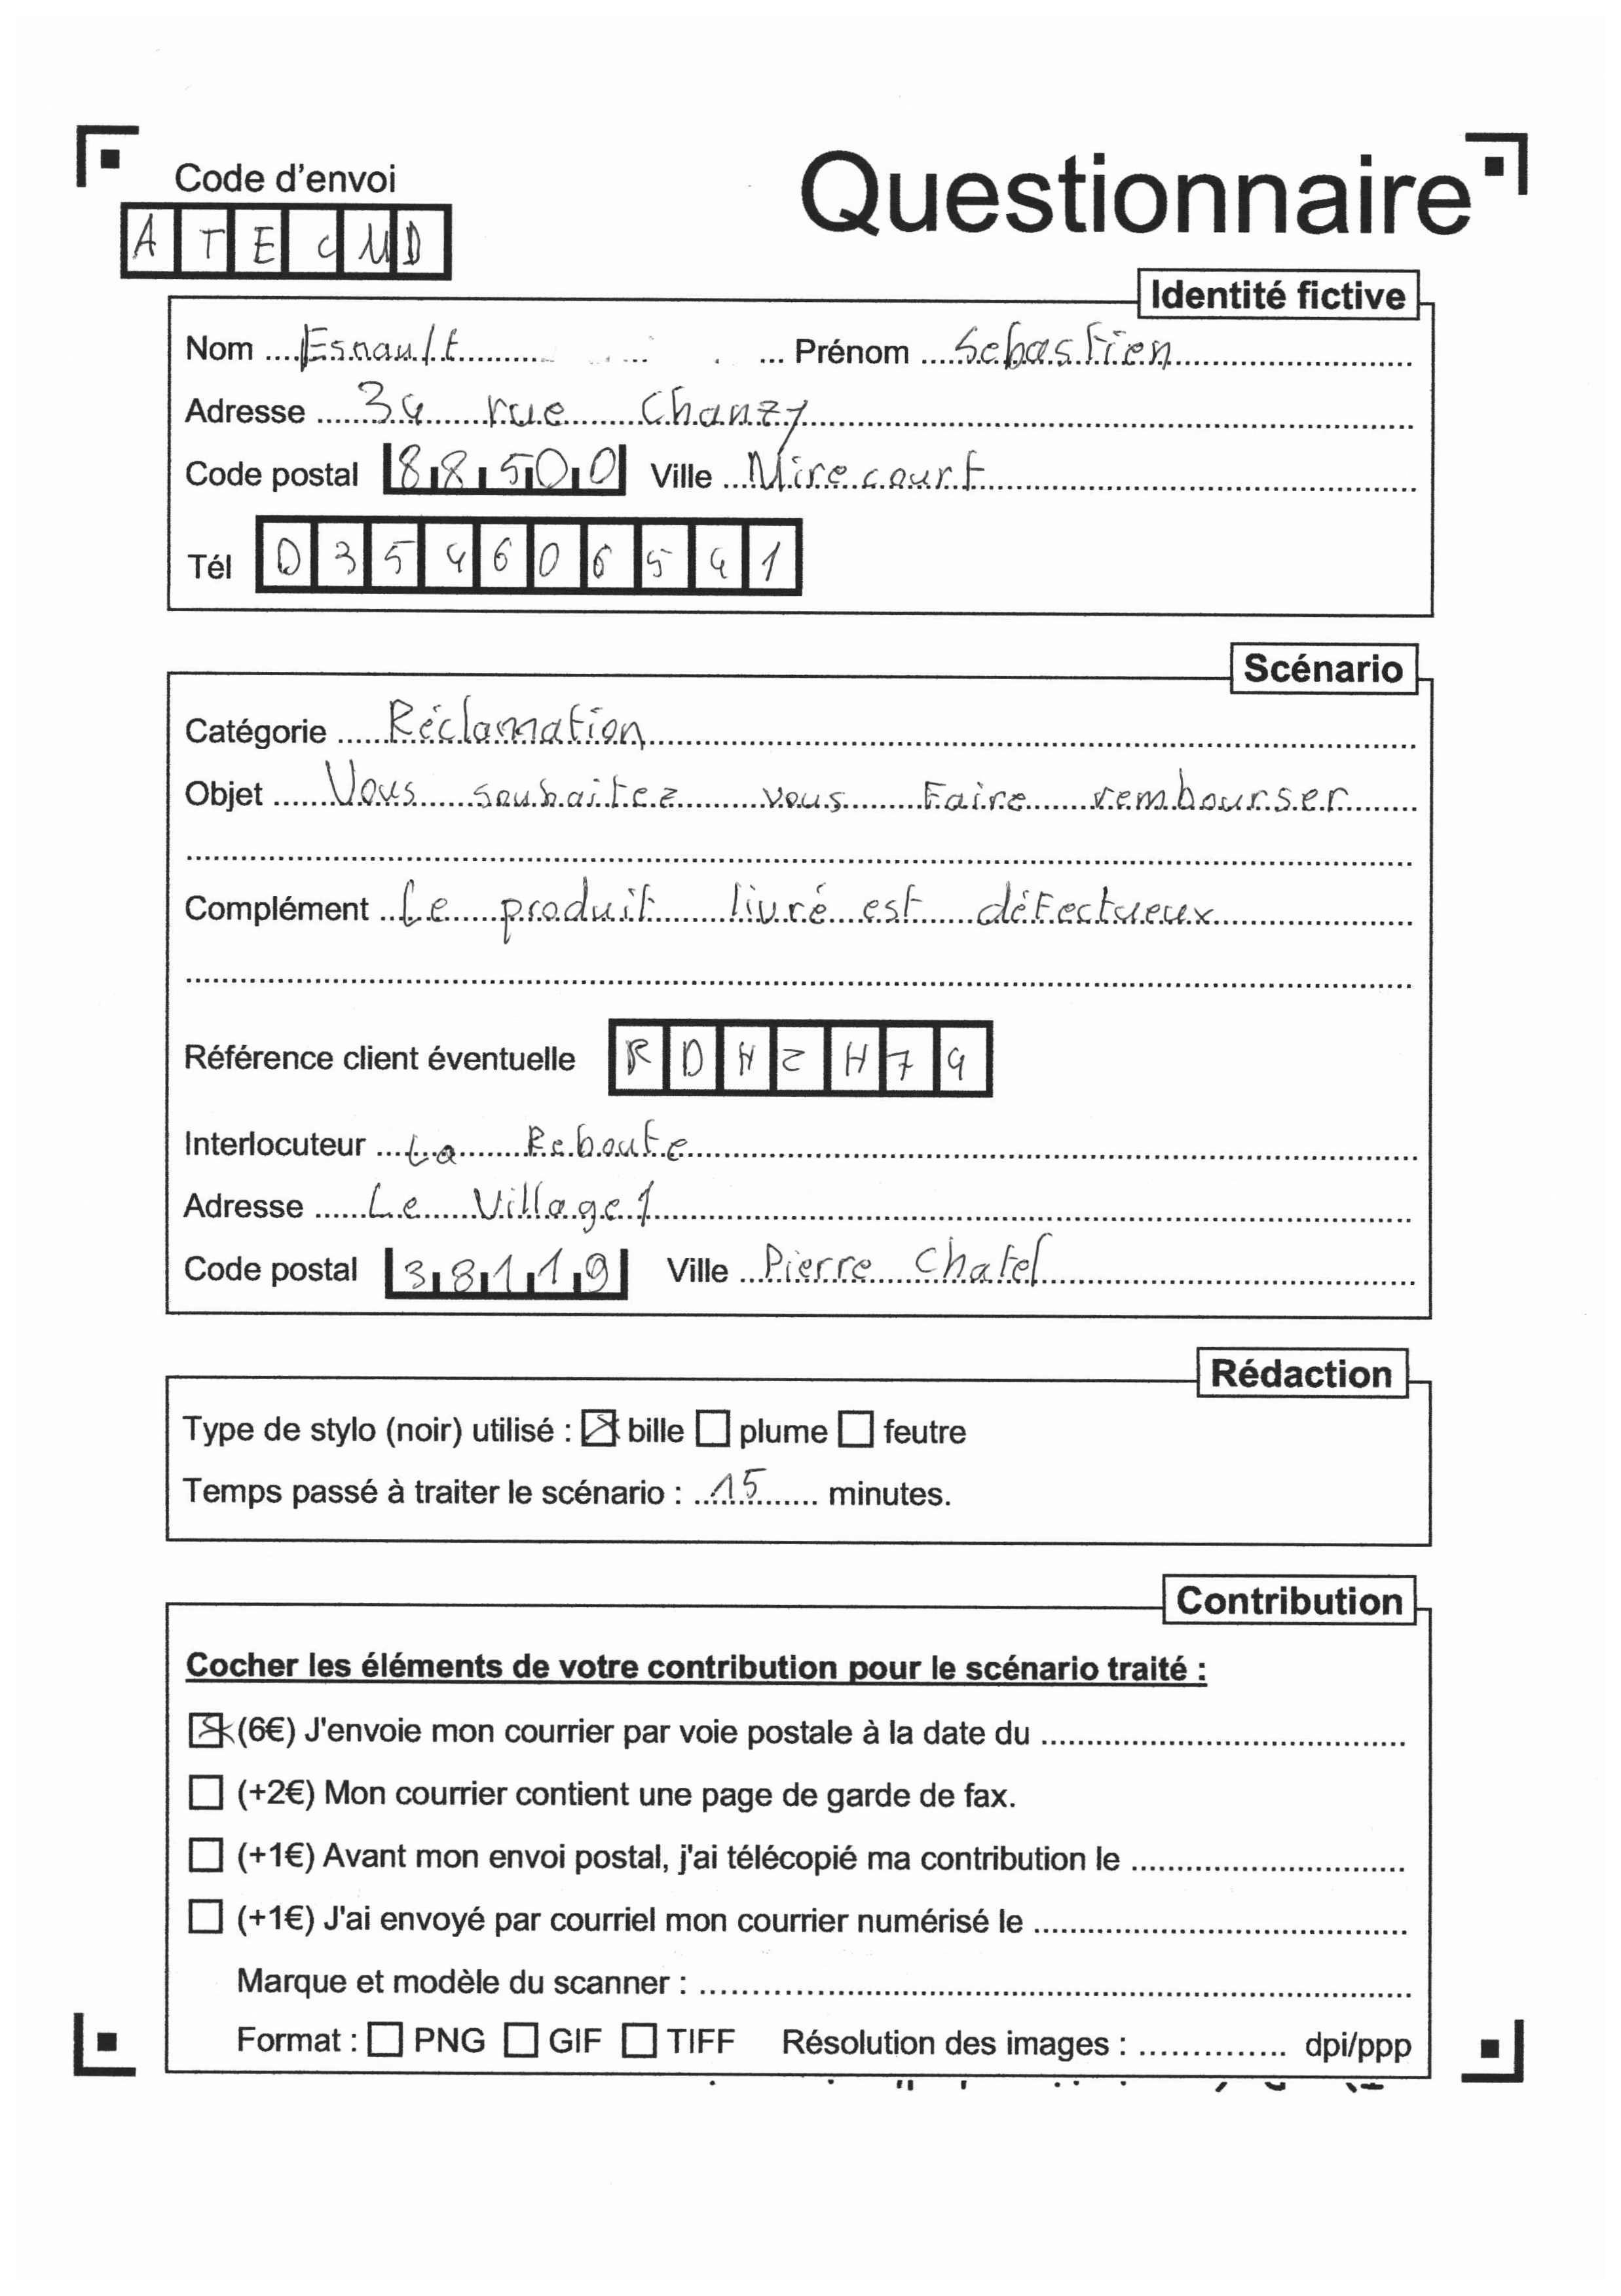 Code d'envoi
Questionnaire
A T E C M D
Identité fictive
Nom Esnault Prénom Sebastien
Adresse 34 rue Chanzy
Code postal 88500 Ville Mirecourt
Tél 0354606541
Scénario
Catégorie Réclamation
Objet Vous souhaitez vous Faire rembourser
Complément Le produit livré est défectueux
Référence client éventuelle R D H Z H 7 4
Interlocuteur La Reboute
Adresse Le Village 1
Code postal 38119 Ville Pierre Chatel
Rédaction
Type de stylo (noir) utilisé : bille plume feutre
Temps passé à traiter le scénario : 15 minutes.
Contribution
Cocher les éléments de votre contribution pour le scénario traité :
(6€) J'envoie mon courrier par voie postale à la date du
(+2€) Mon courrier contient une page de garde de fax.
(+1€) Avant mon envoi postal, j'ai télécopié ma contribution le
(+1€) J'ai envoyé par courriel mon courrier numérisé le
Marque et modèle du scanner :
Format : PNG GIF TIFF Résolution des images : dpi/ppp